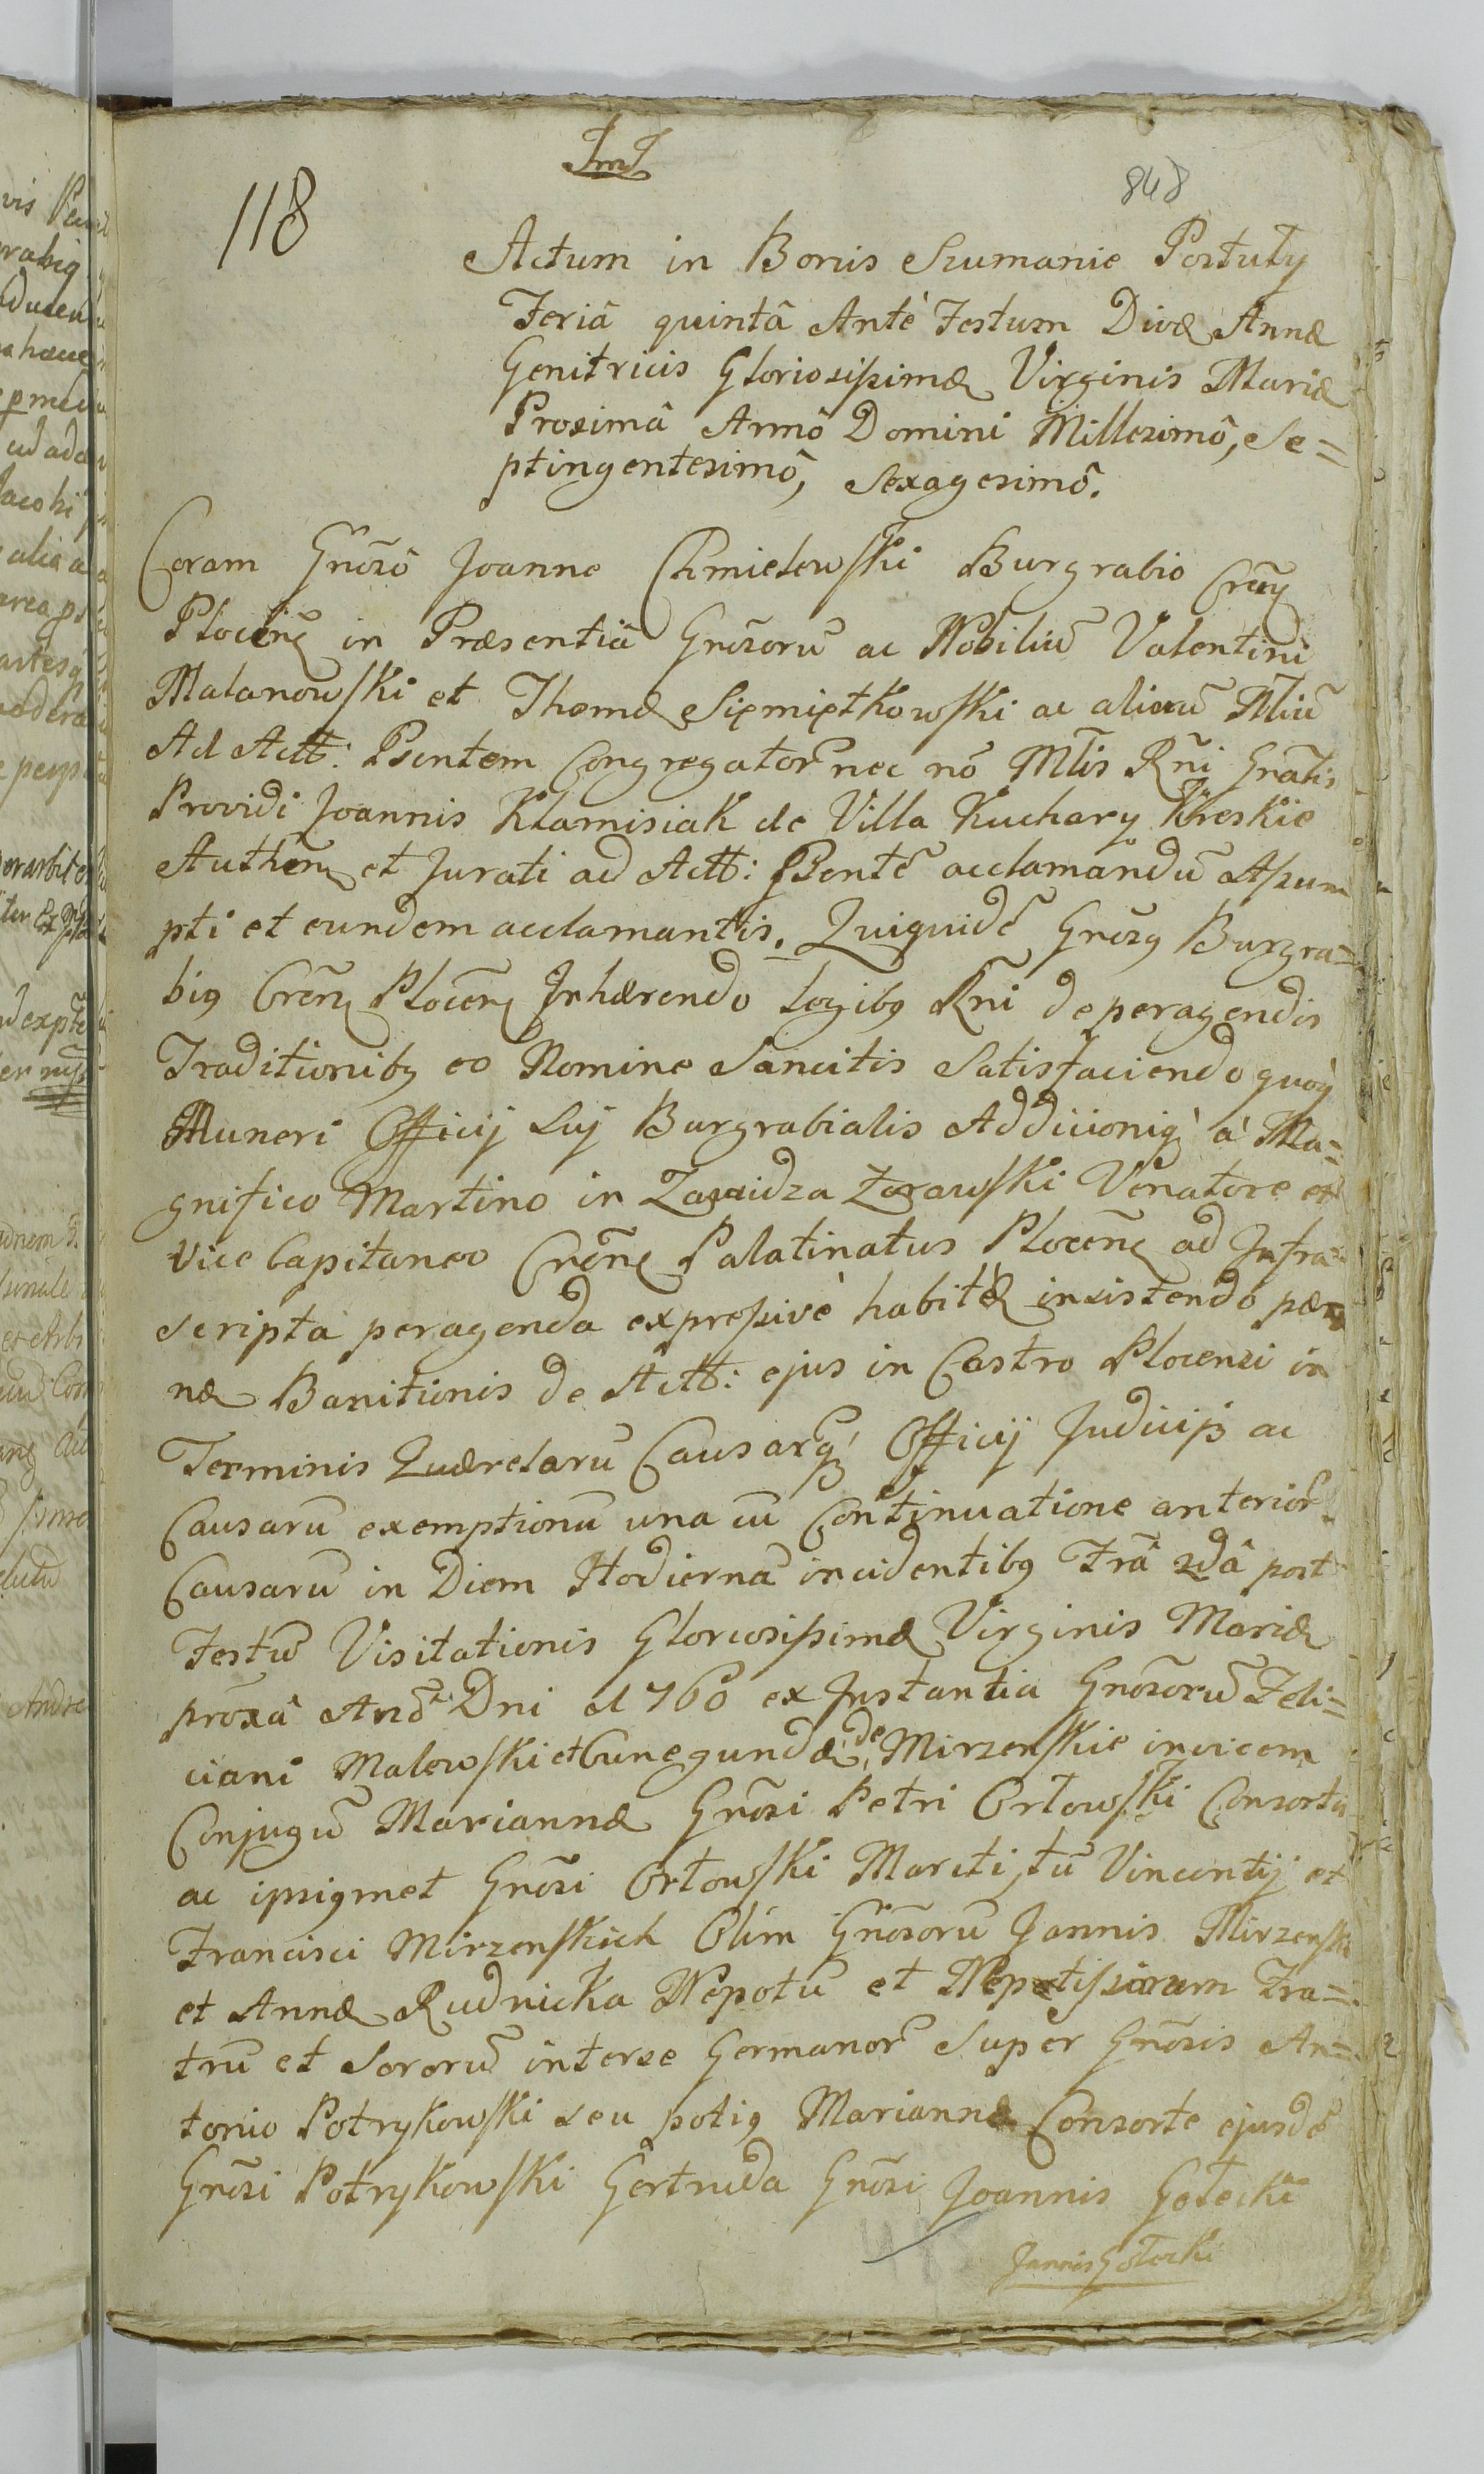 118
848
Actum in Bonis Szumanie Portuty
Feriâ quintâ Antè Festum Divæ Annæ
Genitricis Gloriosissimæ Virginis Mariæ
Proximâ Annô Domini Millesimô, Se=
ptingentesimô, Sexagesimô.
Coram Gnosô Joanne Chmielewski Burgrabio
in Præsentiâ Gnosorũ ac Nobiliũ Valentini
Malanowski et Thomæ Siemiętkowski ac aliorũ
Ad Actt: Psentem Congregator̃ nec nõ Mĩis Rñi Gnãlis
Providi Joannis Klamisiak de Villa Kuchary Kreskie
et Jurati ad Actt: Psentẽ acclamandũ Assum
pti et eundem acclamantis. Quiquidẽ Gnosq Burgra=
biq Creñ Ploceñ Inhærendo Legibq Rñi de peragendis
Traditionibq eo Nomine Sancitis Satisfaciendo quoq
Muneri Officij Suj Burgrabialis à Ma=
gnifico Martino in Zawidza Zorawski Venatore et
vice Capitaneo Creñ Palatinatus Ploceñ ad Infra
scripta peragenda expressivè habitæ insistendo pæ
næ Banitionis de Actt: ejus in Castro Plocensi in
Terminis Quærelarũ Causarq̃ Officij Judicijs ac
Causarũ exemptionũ una cũ Continuatione anterior̃
Causarũ in Diem Hodiernã incidentibq Frâ 2dâ post
Festũ Visitationis Gloriosissimæ Virginis Mariæ
prõxâ Anõ Dni 1760 ex Instantia Gnosorũ Feli=
ciani Malewski et Cunegundæ de Mirzenskie invicem
Conjugũ Mariannæ Gnosi Petri Orłowski Consortis
ac ipsiqmet Gnosi Orłowski Mariti, tũ Vincentij et
Francisci Mirzenskich Olim Gnosorũ Joannis Mirzenski
et Annæ Rudnicka Nepotũ et Neptissarum Fra=
trũ et Sororũ interse Germanor̃ Super Gnosis An=
tonio Potrykowski seu potiq Mariannæ Consorte ejusdẽ
Gnosi Potrykowski Gertruda Gnosi Joannis Gołecki
Joannis Gołecki